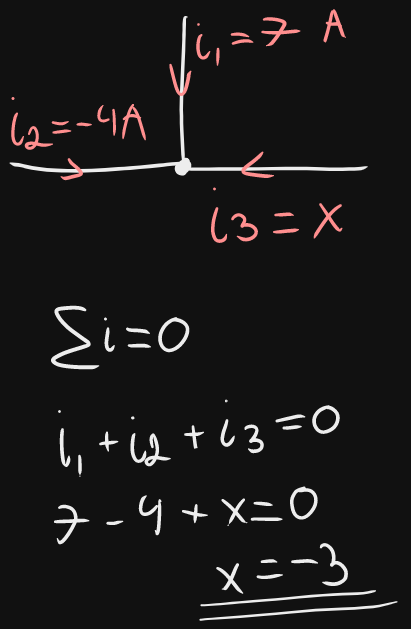 i₁ = 7 A
i₂ = -4A
i3 = X
∑i = 0
i₁ + i₂ + i3 = 0
7 - 4 + x = 0
x = -3